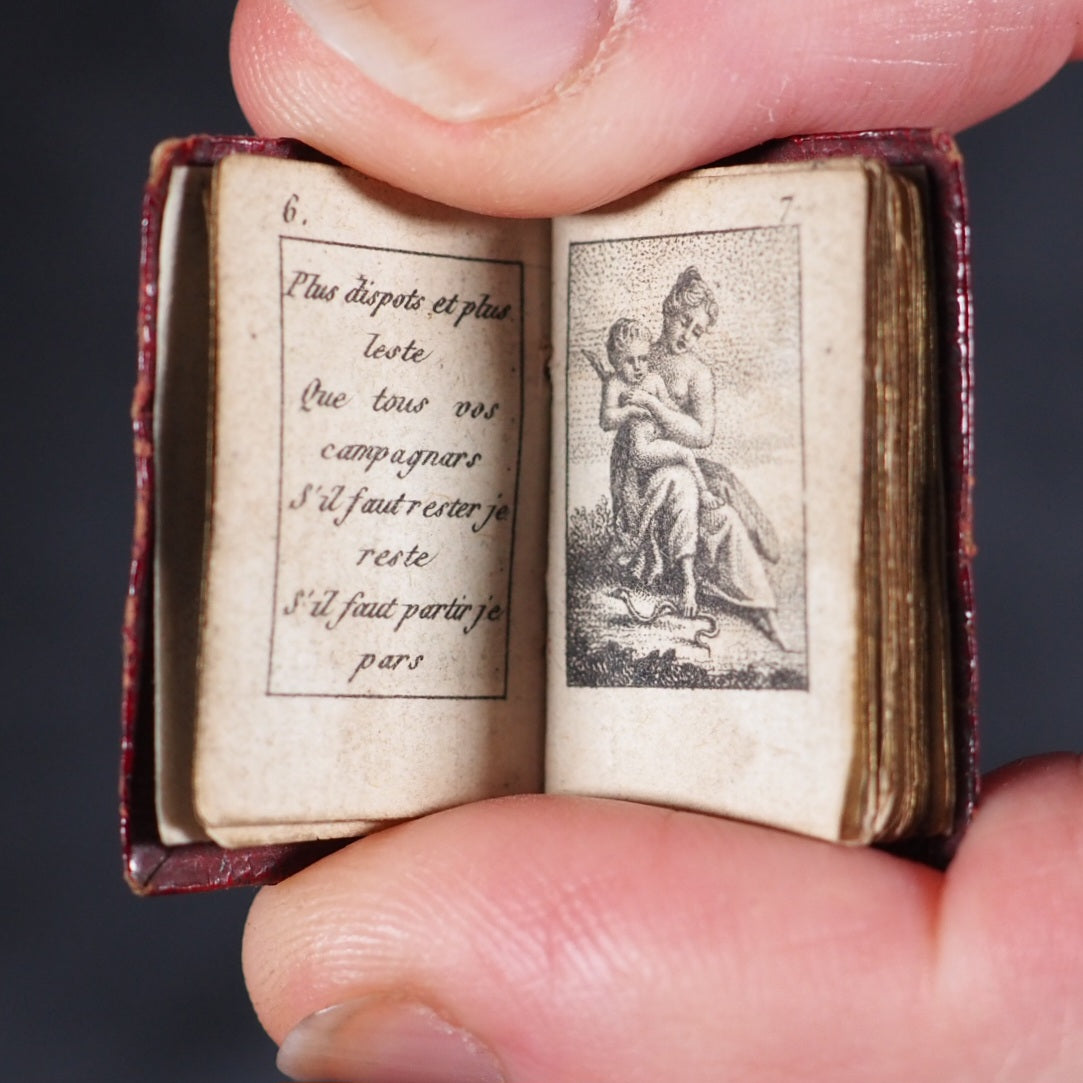 6.
Plus dispots et plus
leste
Que tous vos
campagnars
S'il faut rester je
reste
S'il faut partir je
pars
7